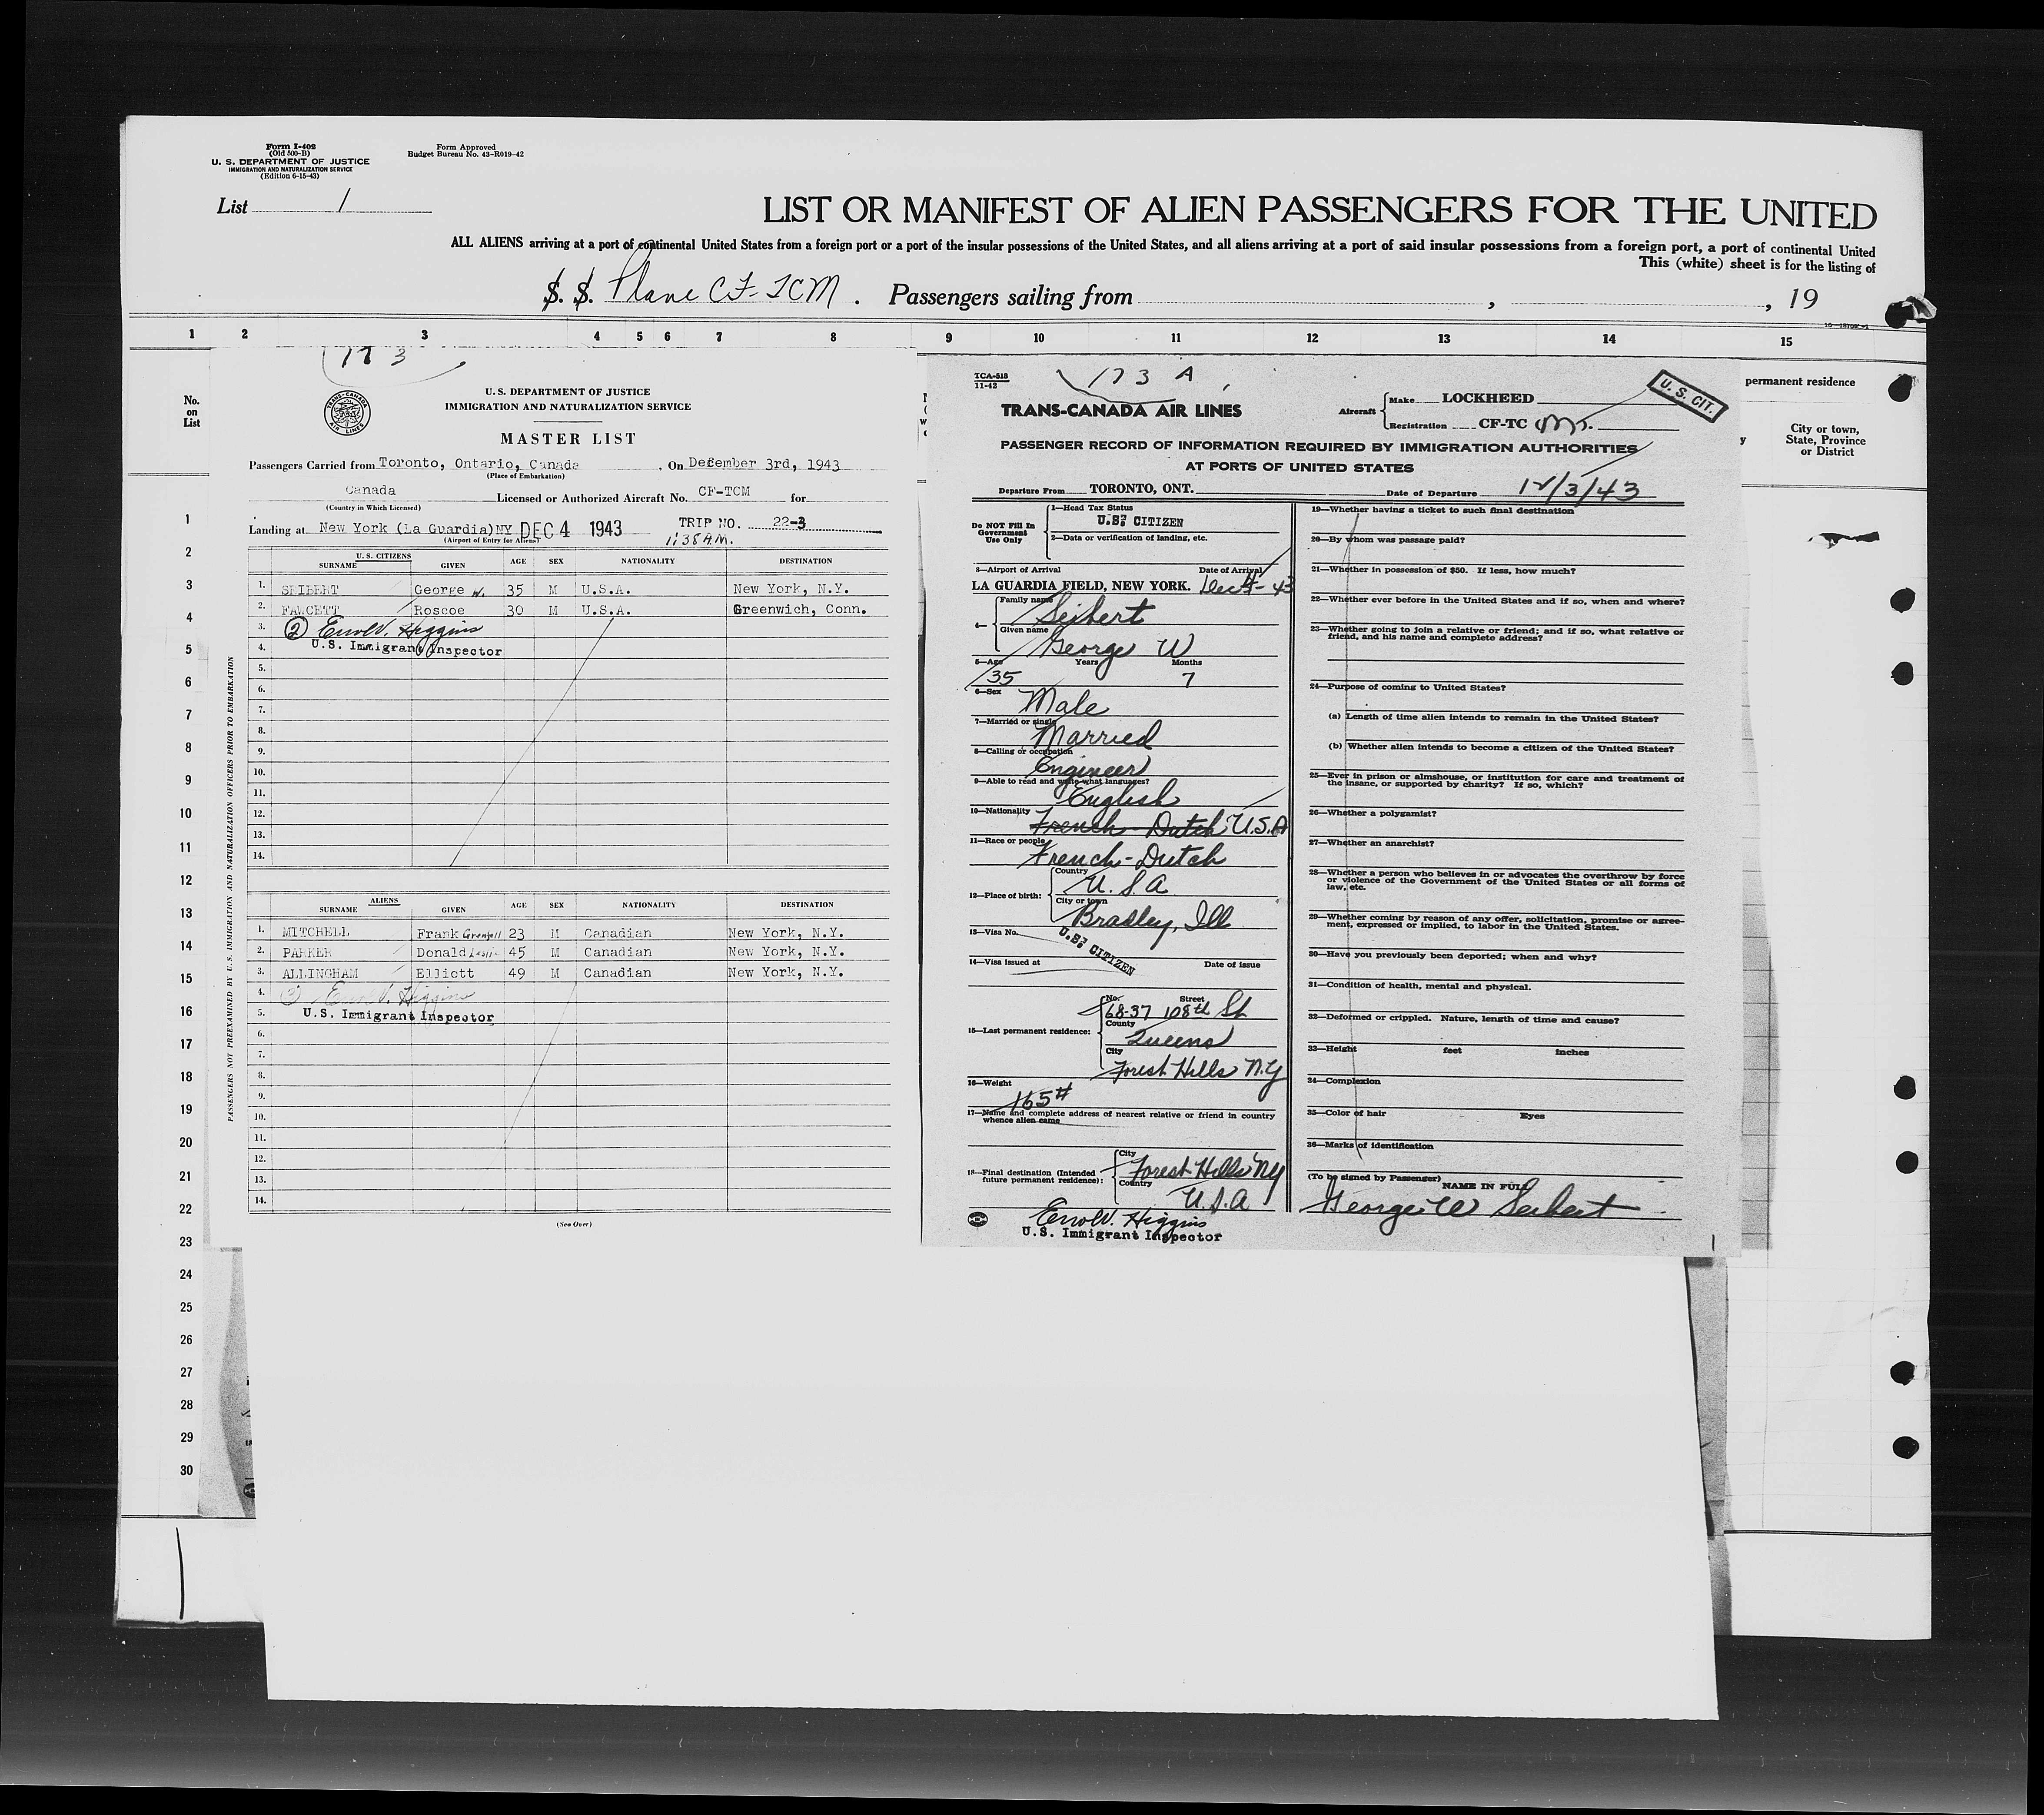 Form I-402
(Old 500-B)
U. S. DEPARTMENT OF JUSTICE
IMMIGRATION AND NATURALIZATION SERVICE
(Edition 6-15-43)
Form Approved
Budget Bureau No. 43-R019-42
List 1
LIST OR MANIFEST OF ALIEN PASSENGERS FOR THE UNITED
ALL ALIENS arriving at a port of continental United States from a foreign port or a port of the insular possessions of the United States, and all aliens arriving at a port of said insular possessions from a foreign port, a port of continental United
This (white) sheet is for the listing of
S. S. Plane CF-TCM. Passengers sailing from , , 19
1 2 3 4 5 6 7 8 9 10 11 12 13 14 15
No.
on
List
1
2
3
4
5
6
7
8
9
10
11
12
13
14
15
16
17
18
19
20
21
22
23
24
25
26
27
28
29
30
permanent residence
City or town,
State, Province
or District
173
TRANS-CANADA AIR LINES
U. S. DEPARTMENT OF JUSTICE
IMMIGRATION AND NATURALIZATION SERVICE
MASTER LIST
Passengers Carried from Toronto, Ontario, Canada, On December 3rd, 1943
(Place of Embarkation)
Canada Licensed or Authorized Aircraft No. CF-TCM for
(Country in Which Licensed)
Landing at New York (La Guardia) NY DEC 4 1943 TRIP NO. 22-3
(Airport of Entry for Aliens) 1:38 A.M.
U. S. CITIZENS
SURNAME GIVEN AGE SEX NATIONALITY DESTINATION
1. SEIBERT George W. 35 M U.S.A. New York, N.Y.
2. FAWCETT Roscoe 30 M U.S.A. Greenwich, Conn.
3. (2) Errol V. Higgins
4. U.S. Immigrant Inspector
5.
6.
7.
8.
9.
10.
11.
12.
13.
14.
ALIENS
SURNAME GIVEN AGE SEX NATIONALITY DESTINATION
1. MITCHELL Frank 23 M Canadian New York, N.Y.
2. PARKER Donald Leslie 45 M Canadian New York, N.Y.
3. ALLINGHAM Elliott 49 M Canadian New York, N.Y.
4. (3) Errol V. Higgins
5. U.S. Immigrant Inspector
6.
7.
8.
9.
10.
11.
12.
13.
14.
(See Over)
PASSENGERS NOT PREEXAMINED BY U.S. IMMIGRATION AND NATURALIZATION OFFICERS PRIOR TO EMBARKATION
TCA-518
11-42
173 A
TRANS-CANADA AIR LINES
Aircraft Make LOCKHEED
Registration CF-TC M.
U. S. CIT.
PASSENGER RECORD OF INFORMATION REQUIRED BY IMMIGRATION AUTHORITIES
AT PORTS OF UNITED STATES
Departure From TORONTO, ONT. Date of Departure 12/3/43
Do NOT Fill In
Government
Use Only
1—Head Tax Status
U.S. CITIZEN
2—Data or verification of landing, etc.
3—Airport of Arrival Date of Arrival
LA GUARDIA FIELD, NEW YORK. Dec 4-43
4— Family name Seibert
Given name George W
5—Age Years Months
35 7
6—Sex
Male
7—Married or single
Married
8—Calling or occupation
Engineer
9—Able to read and write what languages?
English
10—Nationality
French-Dutch U.S.A
11—Race or people
French-Dutch
12—Place of birth: Country U.S.A
City or town Bradley, Ill
13—Visa No.
U.S. CITIZEN
14—Visa issued at Date of issue
15—Last permanent residence: No. Street
68-37 108th St
County
Queens
City
Forest Hills N.Y
16—Weight
165#
17—Name and complete address of nearest relative or friend in country
whence alien came
18—Final destination (Intended
future permanent residence): City Forest Hills NY
Country U.S.A
Errol V. Higgins
U.S. Immigrant Inspector
19—Whether having a ticket to such final destination
20—By whom was passage paid?
21—Whether in possession of $50. If less, how much?
22—Whether ever before in the United States and if so, when and where?
23—Whether going to join a relative or friend; and if so, what relative or
friend, and his name and complete address?
24—Purpose of coming to United States?
(a) Length of time alien intends to remain in the United States?
(b) Whether alien intends to become a citizen of the United States?
25—Ever in prison or almshouse, or institution for care and treatment of
the insane, or supported by charity? If so, which?
26—Whether a polygamist?
27—Whether an anarchist?
28—Whether a person who believes in or advocates the overthrow by force
or violence of the Government of the United States or all forms of
law, etc.
29—Whether coming by reason of any offer, solicitation, promise or agree-
ment, expressed or implied, to labor in the United States.
30—Have you previously been deported; when and why?
31—Condition of health, mental and physical.
32—Deformed or crippled. Nature, length of time and cause?
33—Height feet inches
34—Complexion
35—Color of hair Eyes
36—Marks of identification
(To be signed by Passenger) NAME IN FULL
George W Seibert